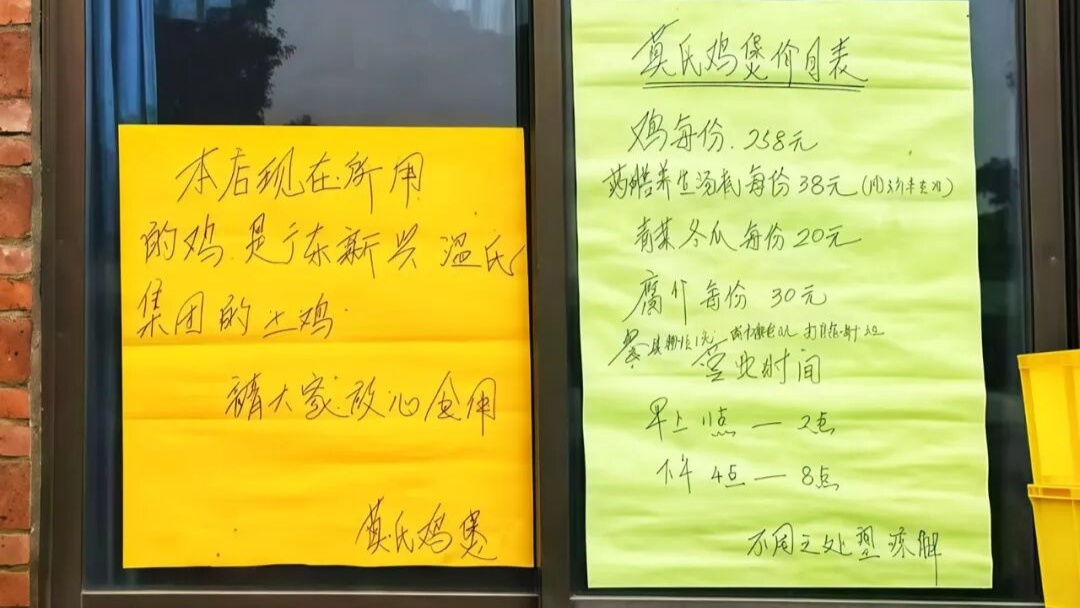 本店现在所用
的鸡.是广东新兴温氏
集团的土鸡.
请大家放心食用
莫氏鸡煲
莫氏鸡煲价目表
鸡每份.258元
药膳养生汤底每份38元
青菜冬瓜每份20元
腐竹每份 30元
餐
营业时间
早上11点—2点
下午4点—8点
不周之处望谅解